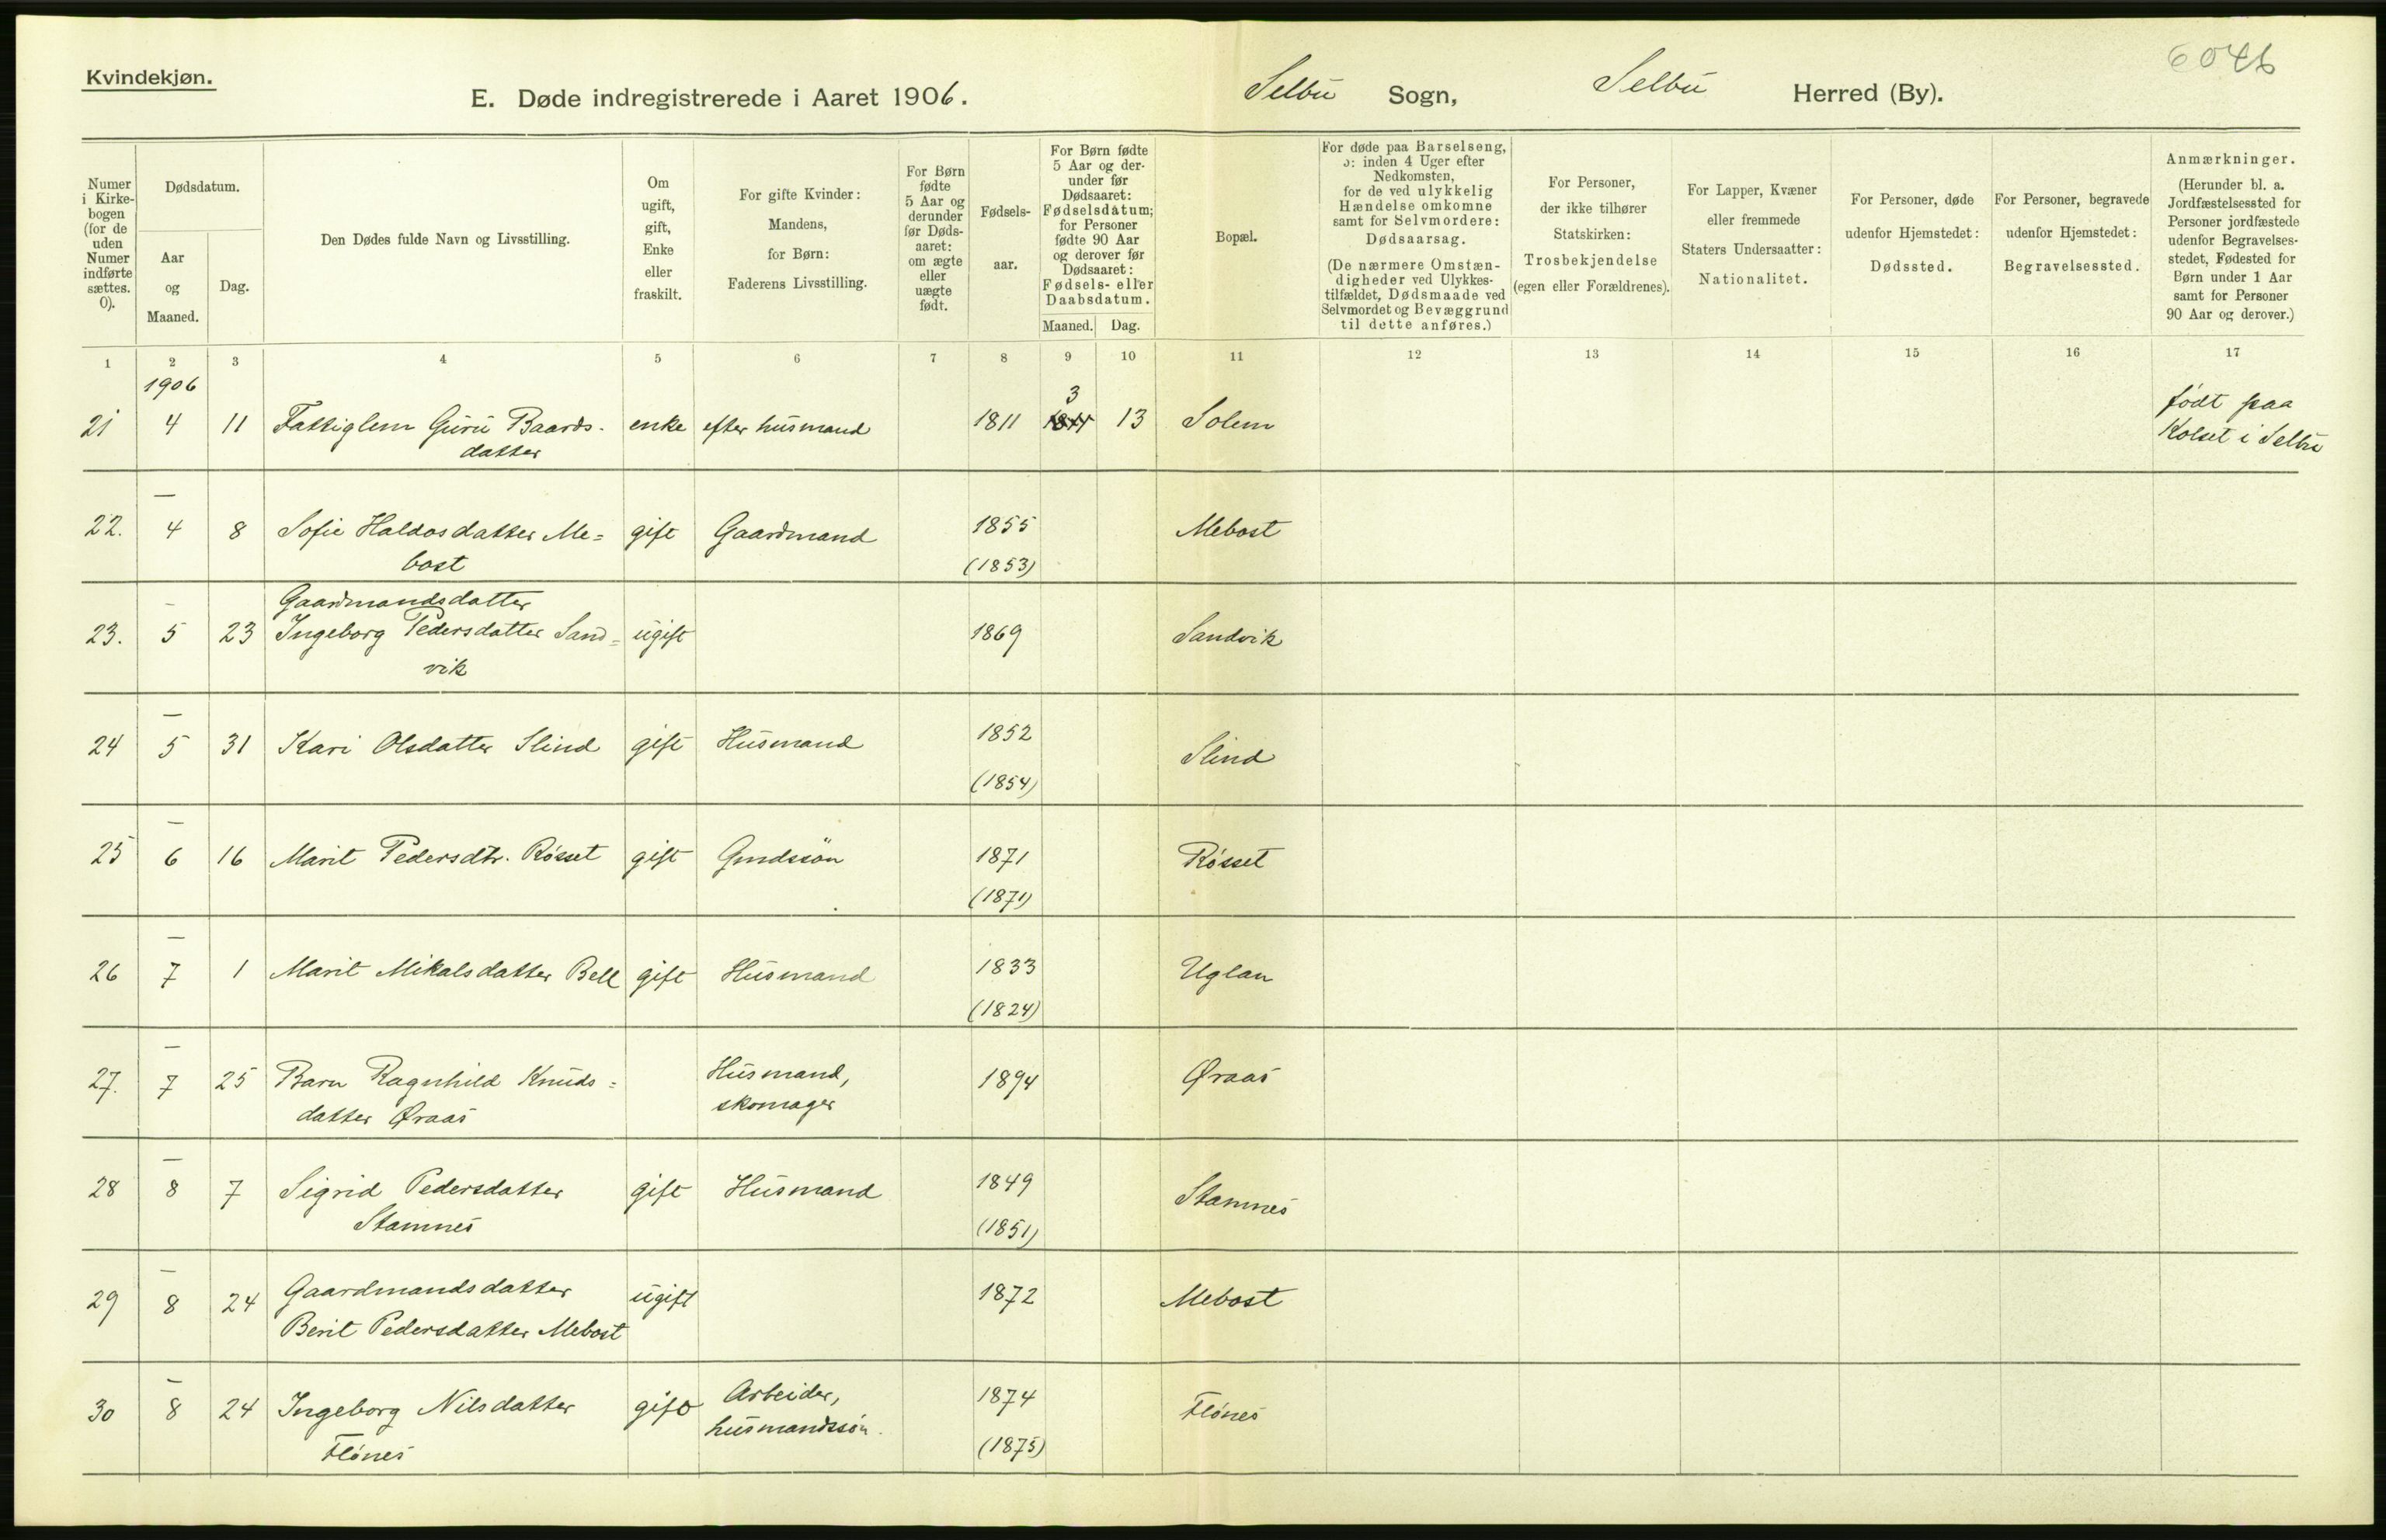 Kvindekjøn.
E. Døde indregistrerede i Aaret 1906.
Selbu Sogn, Selbu Herred (By).
Numer i Kirke-bogen (for de uden Numer indførte sættes. 0).
Dødsdatum.
Aar og Maaned.
Dag.
Den Dødes fulde Navn og Livsstilling.
Om ugift, gift, Enke eller fraskilt.
For gifte Kvinder: Mandens, for Børn: Faderens Livsstilling.
For Børn fødte 5 Aar og derunder før Døds-aaret: om ægte eller uægte født.
Fødsels-aar.
For Børn fødte 5 Aar og der-under før Dødsaaret: Fødselsdatum; for Personer fødte 90 Aar og derover før Dødsaaret: Fødsels- eller Daabsdatum.
Maaned. Dag.
Bopæl.
For døde paa Barselseng, ɔ: inden 4 Uger efter Nedkomsten, for de ved ulykkelig Hændelse omkomne samt for Selvmordere: Dødsaarsag. (De nærmere Omstæn-digheder ved Ulykkes-tilfældet, Dødsmaade ved Selvmordet og Bevæggrund til dette anføres.)
For Personer, der ikke tilhører Statskirken: Trosbekjendelse (egen eller Forældrenes).
For Lapper, Kvæner eller fremmede Staters Undersaatter: Nationalitet.
For Personer, døde udenfor Hjemstedet: Dødssted.
For Personer, begravede udenfor Hjemstedet: Begravelsessted.
Anmærkninger. (Herunder bl. a. Jordfæstelsessted for Personer jordfæstede udenfor Begravelses-stedet, Fødested for Børn under 1 Aar samt for Personer 90 Aar og derover.)
1 2 3 4 5 6 7 8 9 10 11 12 13 14 15 16 17
1906
21 4 11 Fattiglem Guru Baards- enke efter husmand 1811 3 13 Solem født paa
datter Kolset i Selbu
22. – 4 8 Sofie Haldosdatter Me= gift Gaardmand 1855 Mebost
bost (1853)
Gaardmandsdatter
23. – 5 23 Ingeborg Pedersdatter Sand= ugift 1869 Sandvik
vik
24 – 5 31 Kari Olsdatter Slind gift Husmand 1852 Slind
(1854)
25 – 6 16 Marit Pedersdtr. Røsset gift Gmdssön 1871 Røsset
(1871)
26 – 7 1 Marit Mikalsdatter Bell gift Husmand 1833 Uglan
(1824)
27. – 7 25 Barn Ragnhild Knuds= Husmand, 1894 Øraas
datter Øraas skomager
28 – 8 7 Sigrid Pedersdatter gift Husmand 1849 Stamnes
Stamnes (1851)
29 – 8 24 Gaardmandsdatter ugift 1872 Mebost
Berit Pedersdatter Mebost
30 – 8 24 Ingeborg Nilsdatter gift Arbeider, 1874 Flønes
Flønes husmandssøn. (1875)